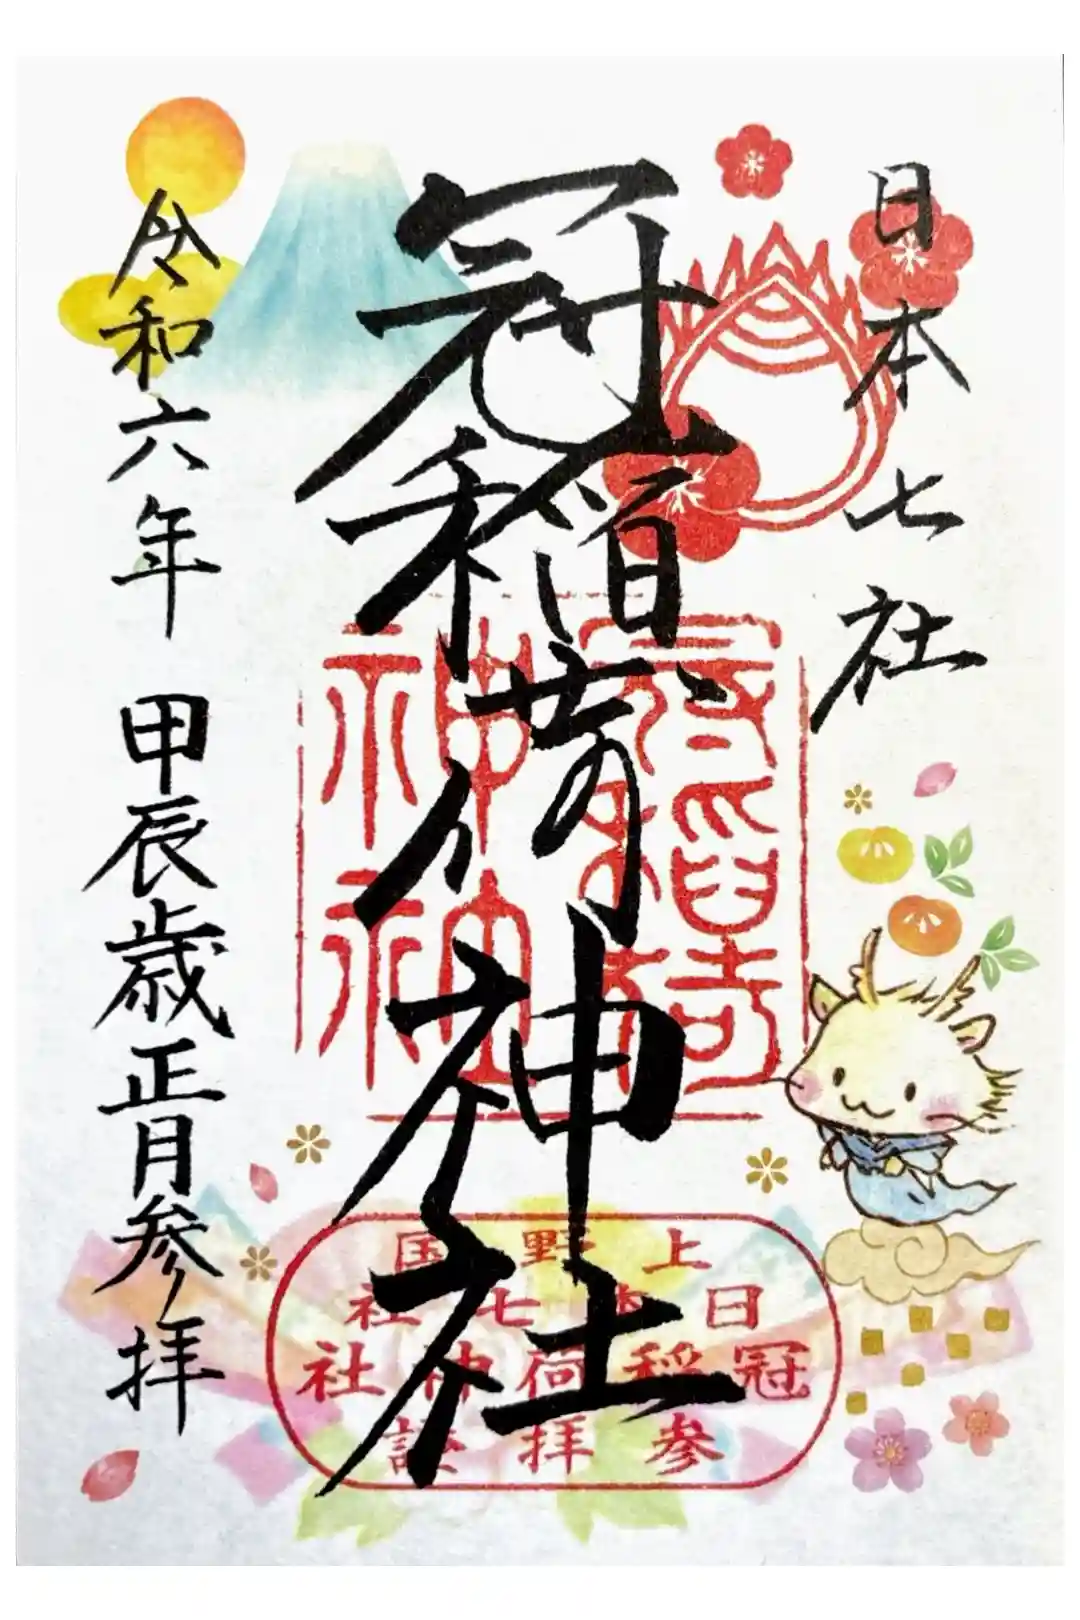 日本七社
冠稲荷神社
令和六年 甲辰歳正月参拝
冠稲荷
神社
上野国
日本七社
冠稲荷神社
参拝証